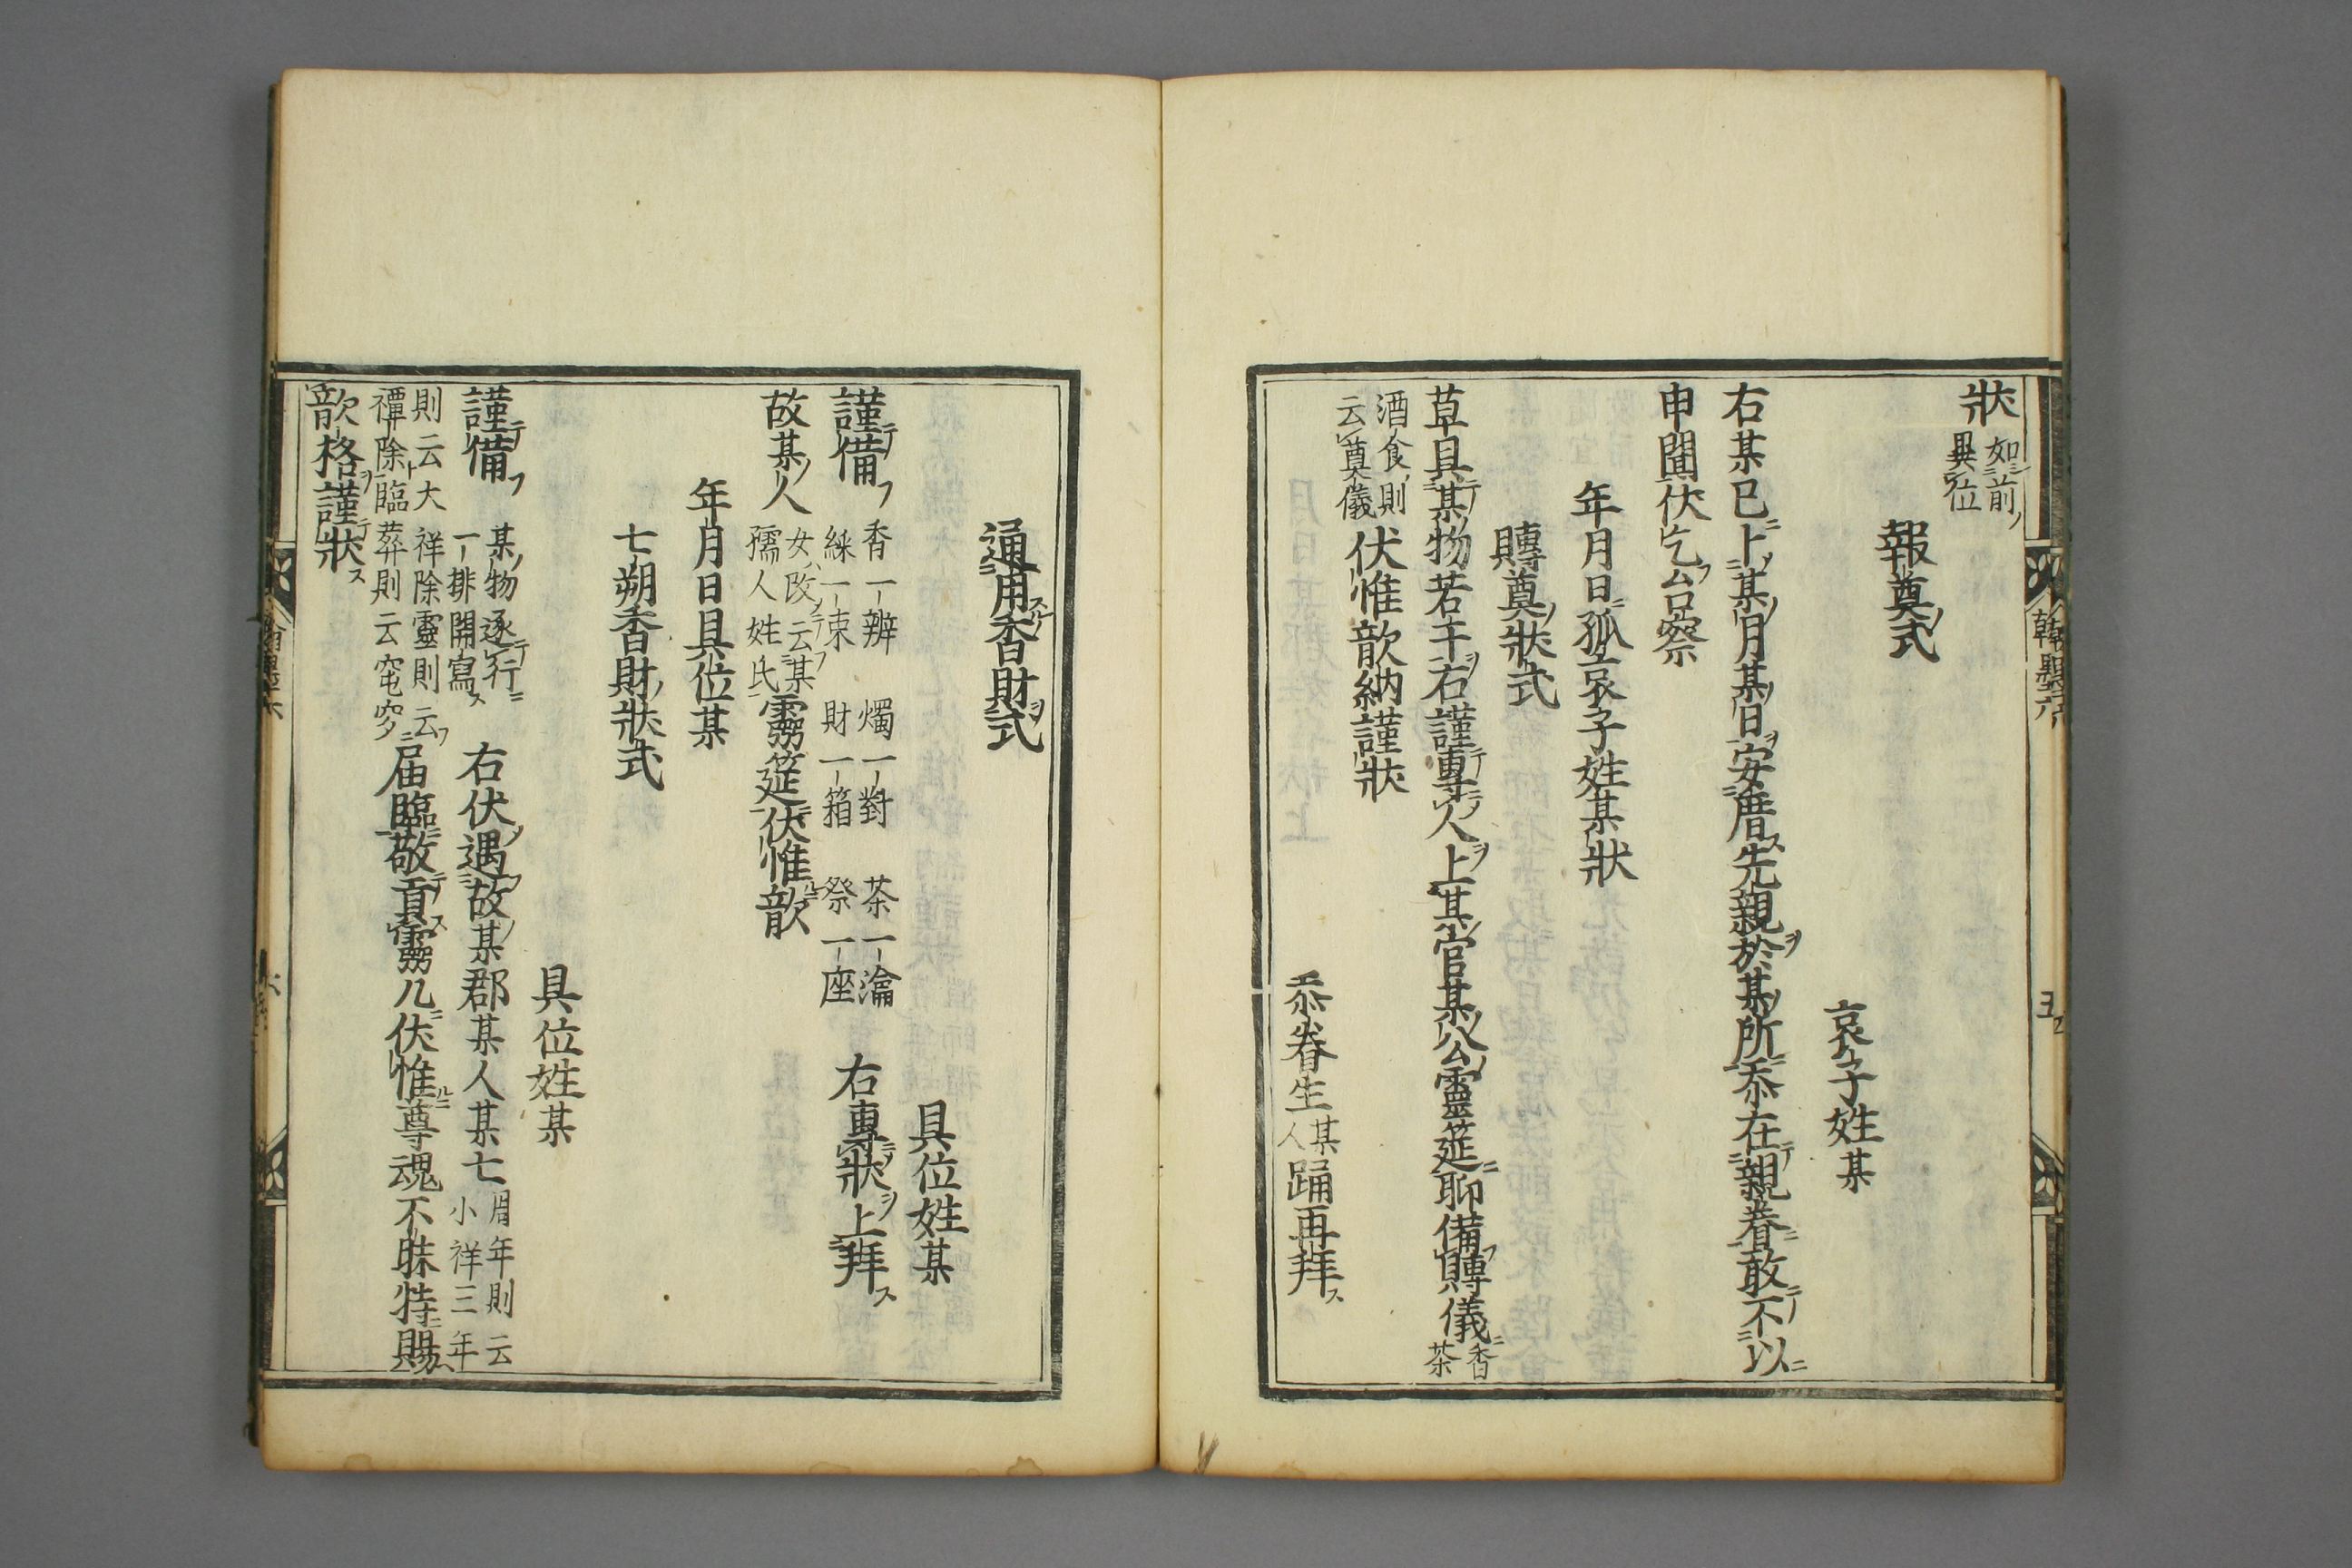 狀 如前具位
報奠式
哀子姓某
右某已上某月某日安厝先親於某所忝在親眷敢不以
申聞伏乞台察
年月日孤哀子姓某狀
賻奠狀式
草具某物若干右謹專人上某官某公靈筵聊備賻儀 香茶
酒食則云奠儀 伏惟歆納謹狀
忝眷生 某人 踊再拜
翰墨六
五
通用香財式
具位姓某
謹備 香一辦 燭一對 茶一瀹 綵一束 財一箱 祭一座 右專狀上拜
故某人 女改云某孺人姓氏 靈筵伏惟歆
年月日具位某
七朔香財狀式
具位姓某
謹備 某物逐行一排開寫 右伏遇故某郡某人某七 周年則云小祥三年
則云大祥除靈則云禫除臨葬則云窀穸 届臨敬賁靈几伏惟尊魂不昧特賜
歆格謹狀
六